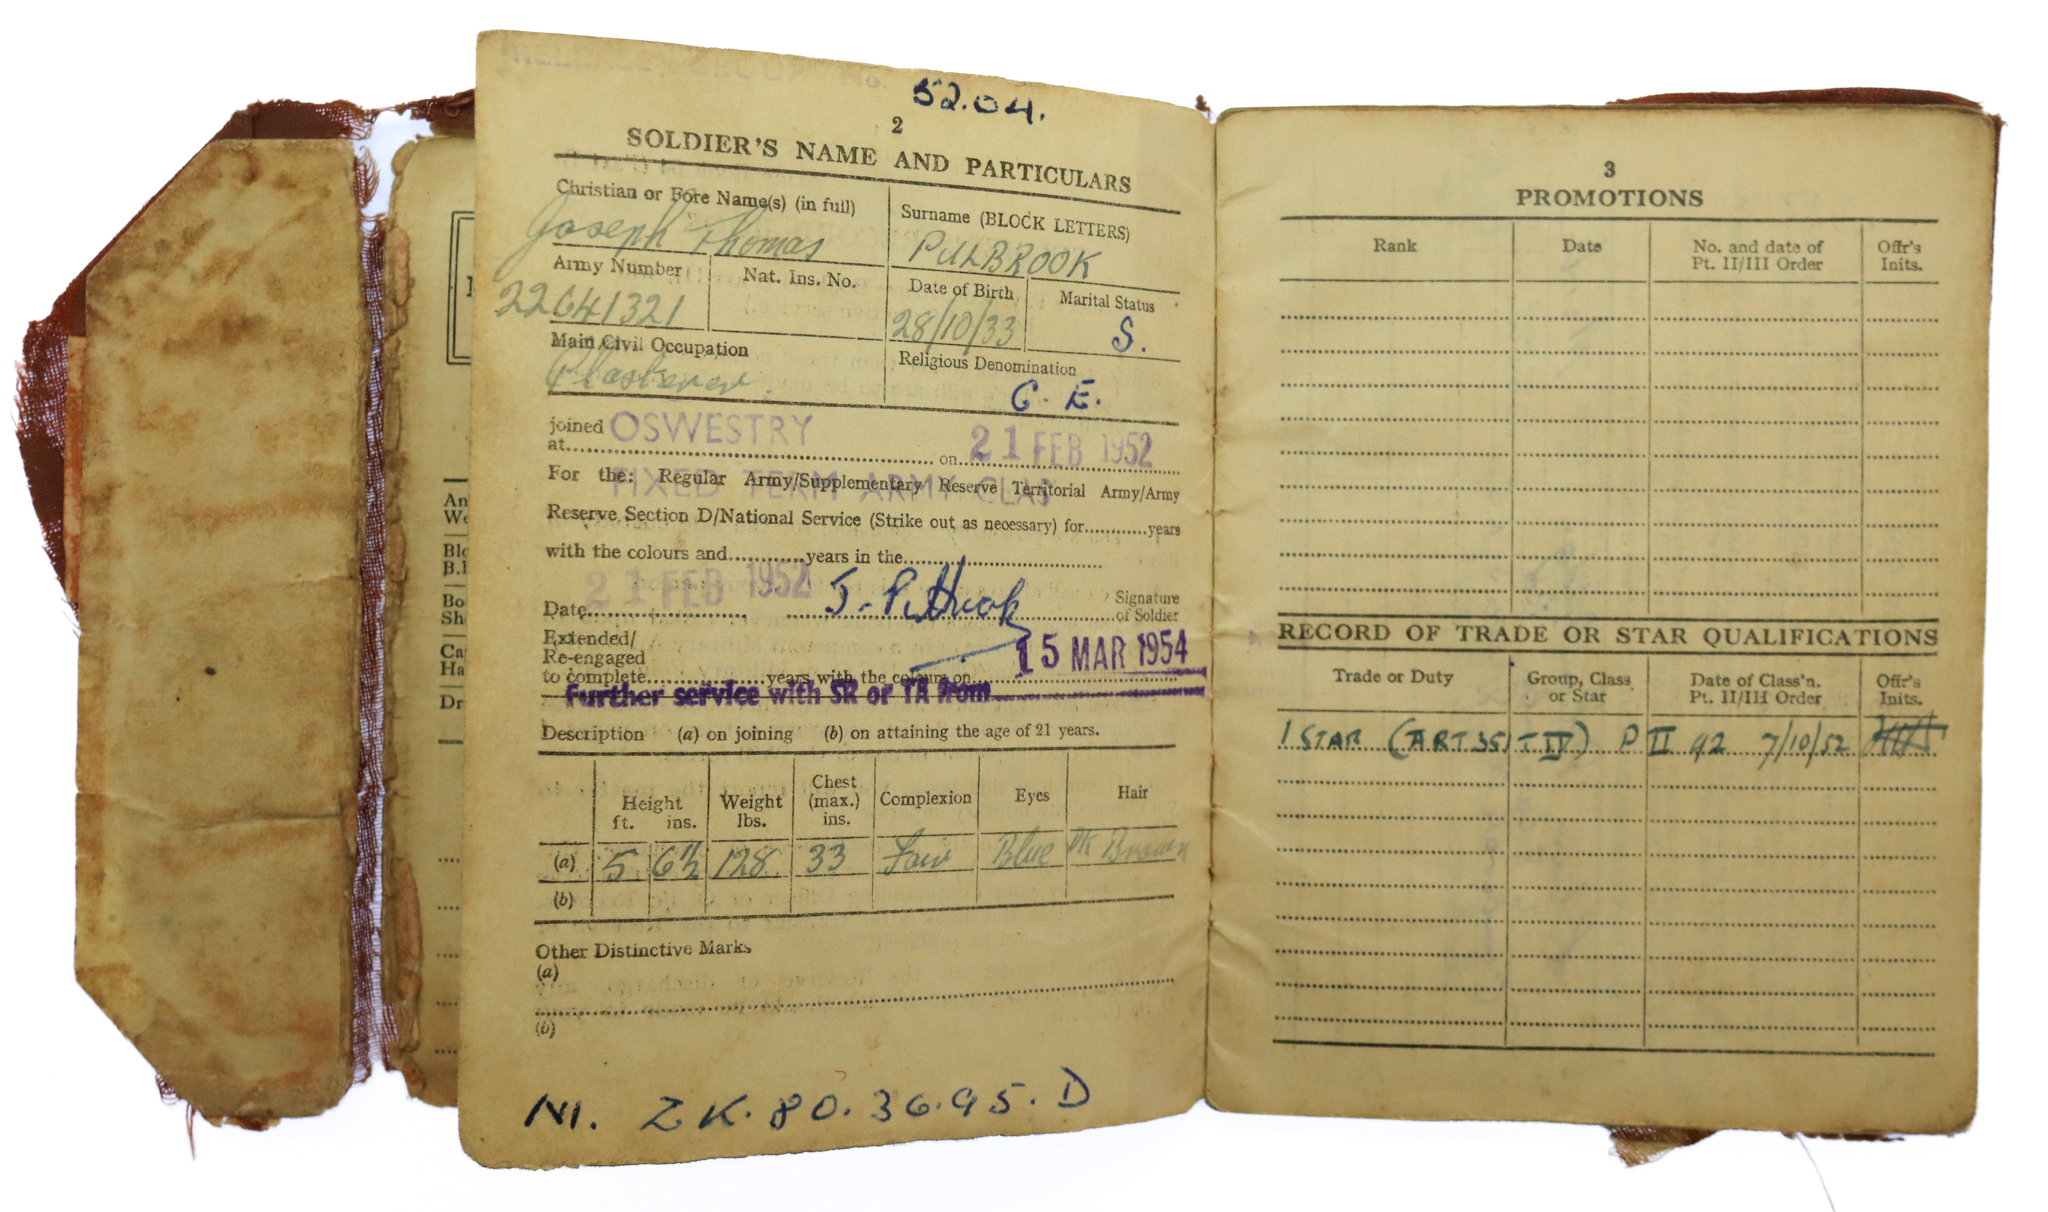 RELEASE GROUP No.
52.04.
2
SOLDIER'S NAME AND PARTICULARS
Christian or Fore Name(s) (in full)
Joseph Thomas
Surname (BLOCK LETTERS)
PULBROOK
Army Number
22641321
Nat. Ins. No.
Date of Birth
28/10/33
Marital Status
S.
Main Civil Occupation
Plasterer.
Religious Denomination
C. E.
joined
at OSWESTRY on 21 FEB 1952
FIXED TERM ARMY CLAS
For the: Regular Army/Supplementary Reserve Territorial Army/Army
Reserve Section D/National Service (Strike out as necessary) for years
with the colours and years in the
Date 21 FEB 1952 J. Pulbrook Signature
of Soldier
Extended/
Re-engaged
to complete years with the colours on 15 MAR 1954
Further service with SR or TA from
Description (a) on joining (b) on attaining the age of 21 years.
Height
ft. ins.
Weight
lbs.
Chest
(max.)
ins.
Complexion
Eyes
Hair
(a) 5 6½ 128 33 Fair Blue DK Brown
(b)
Other Distinctive Marks
(a)
(b)
NI. ZK.80.36.95.D
An
We
Blo
B.
Bo
Sh
Ca
Ha
Dr
3
PROMOTIONS
Rank
Date
No. and date of
Pt. II/III Order
Offr's
Inits.
RECORD OF TRADE OR STAR QUALIFICATIONS
Trade or Duty
Group, Class
or Star
Date of Class'n.
Pt. II/III Order
Offr's
Inits.
1 STAR (ART 35 - IV) P II 92 7/10/52